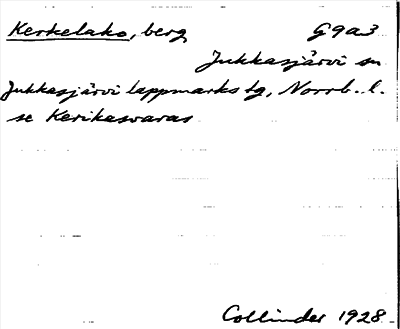 Kerkelako, berg G9a3
Jukkasjärvi sn
Jukkasjärvi lappmarks tg, Norrb. l.
se Kerikasvaras
Collinder 1928